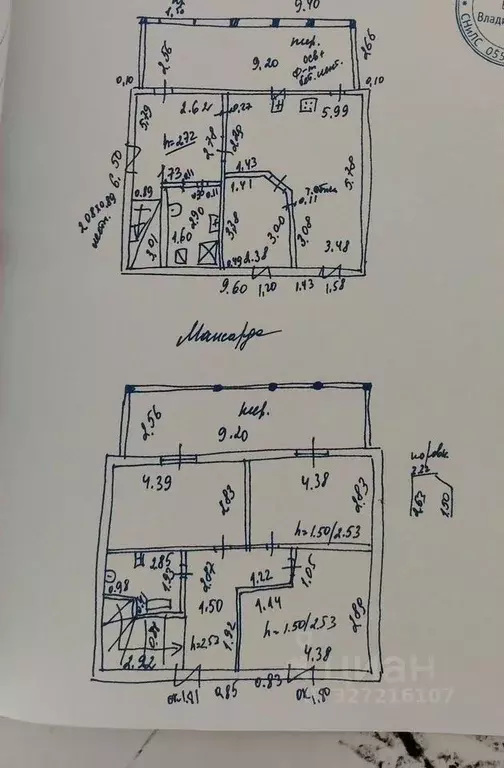 9.40
СНиЛС 055
Влади
тер.
9.20
2.56
2.66
0,10
0,10
5.79
2.62
0.27
5.99
h=2.72
2.78
2.80
5.70
6.50
1.73
0.11
1.43
1.41
0.89
0.11
2.90
0,11
3.01
1.60
3.78
3.00
3.08
3.48
0.49
2.38
9.60
1,20
1.43
1,58
Мансарда
2.56
тер.
9.20
4.39
2.83
4.38
2.83
h=1.50/2.53
2.22
1.63
1.50
2.85
1.93
0.98
2.87
1.22
1.05
1.50
1.44
h=2.53
1.92
h=1.50/2.53
2.89
2.92
4.38
ок1.81
0.85
0.83
ок1.80
циан
327216107